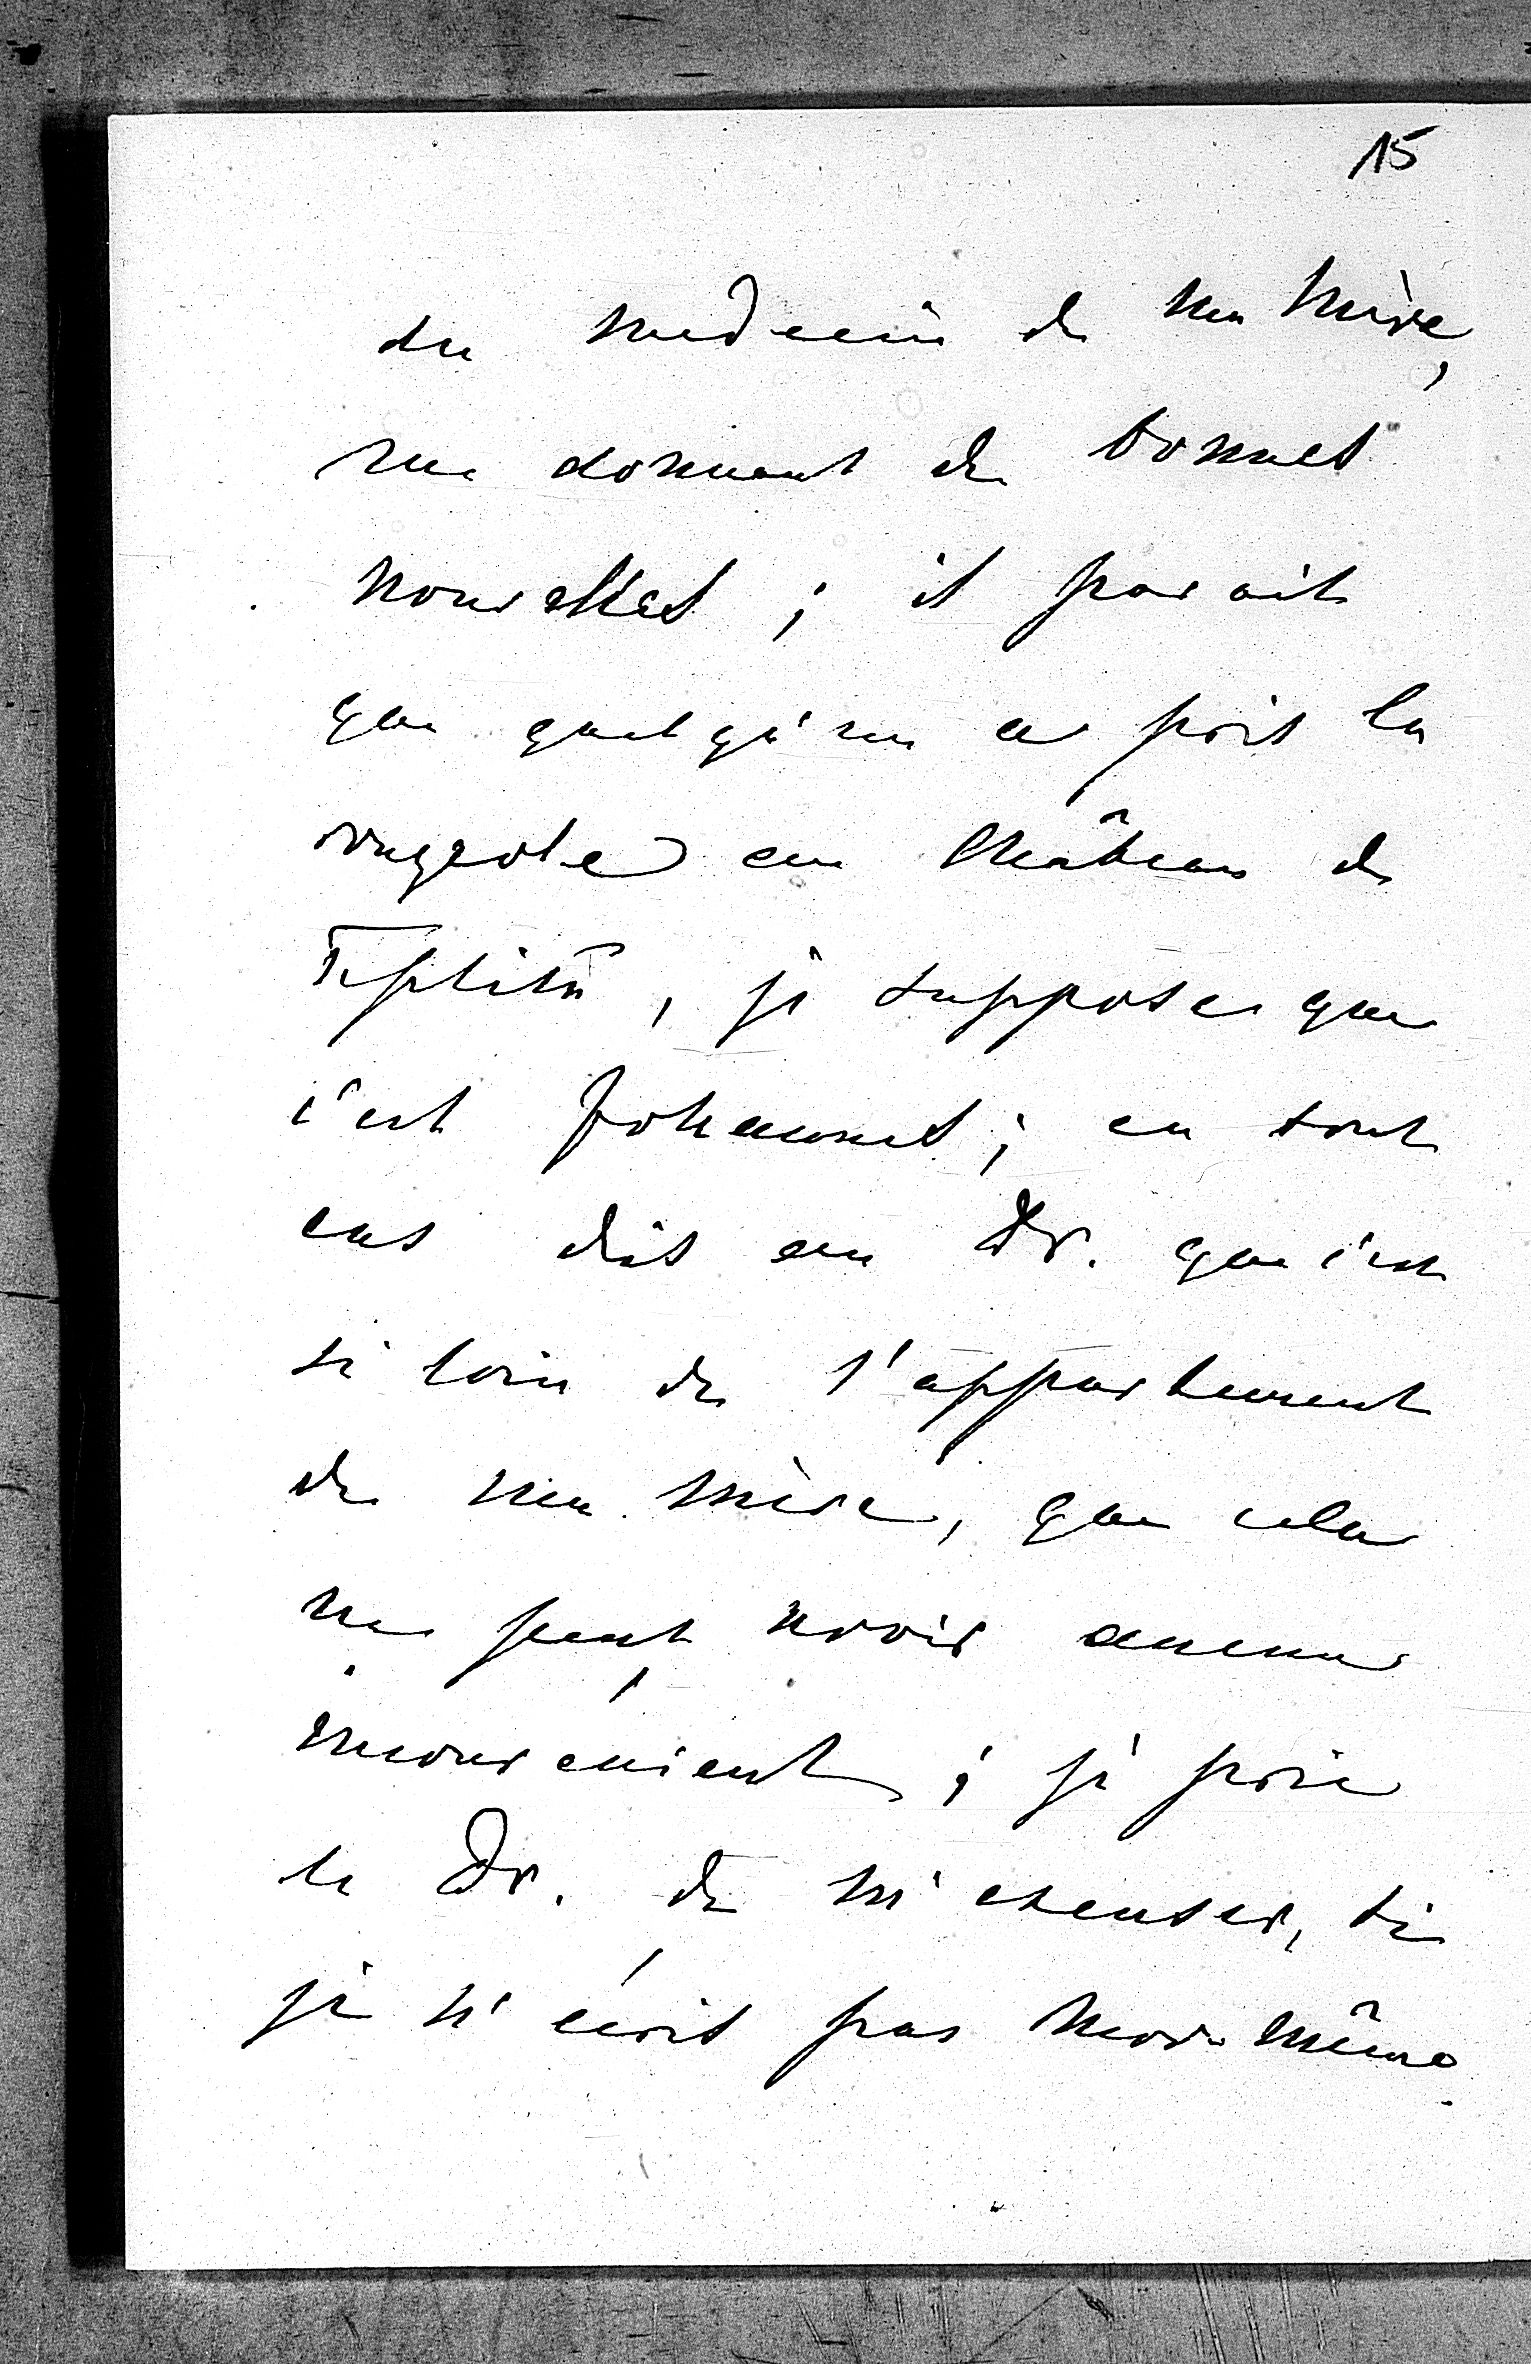 15
du medecin de ma Mère,
me donnant de bonnes
nouvelles ; il parait
que quelqu'un a pris la
rougeole au Château de
Teplitz, je suppose que
c'est Johannes ; en tout
cas dis au Dr. que c'est
si loin de l'appartement
de ma mère, que cela
ne peut avoir aucun
inconvénient ; je prie
le Dr. de m'excuser, si
je n'écris pas moi-même.